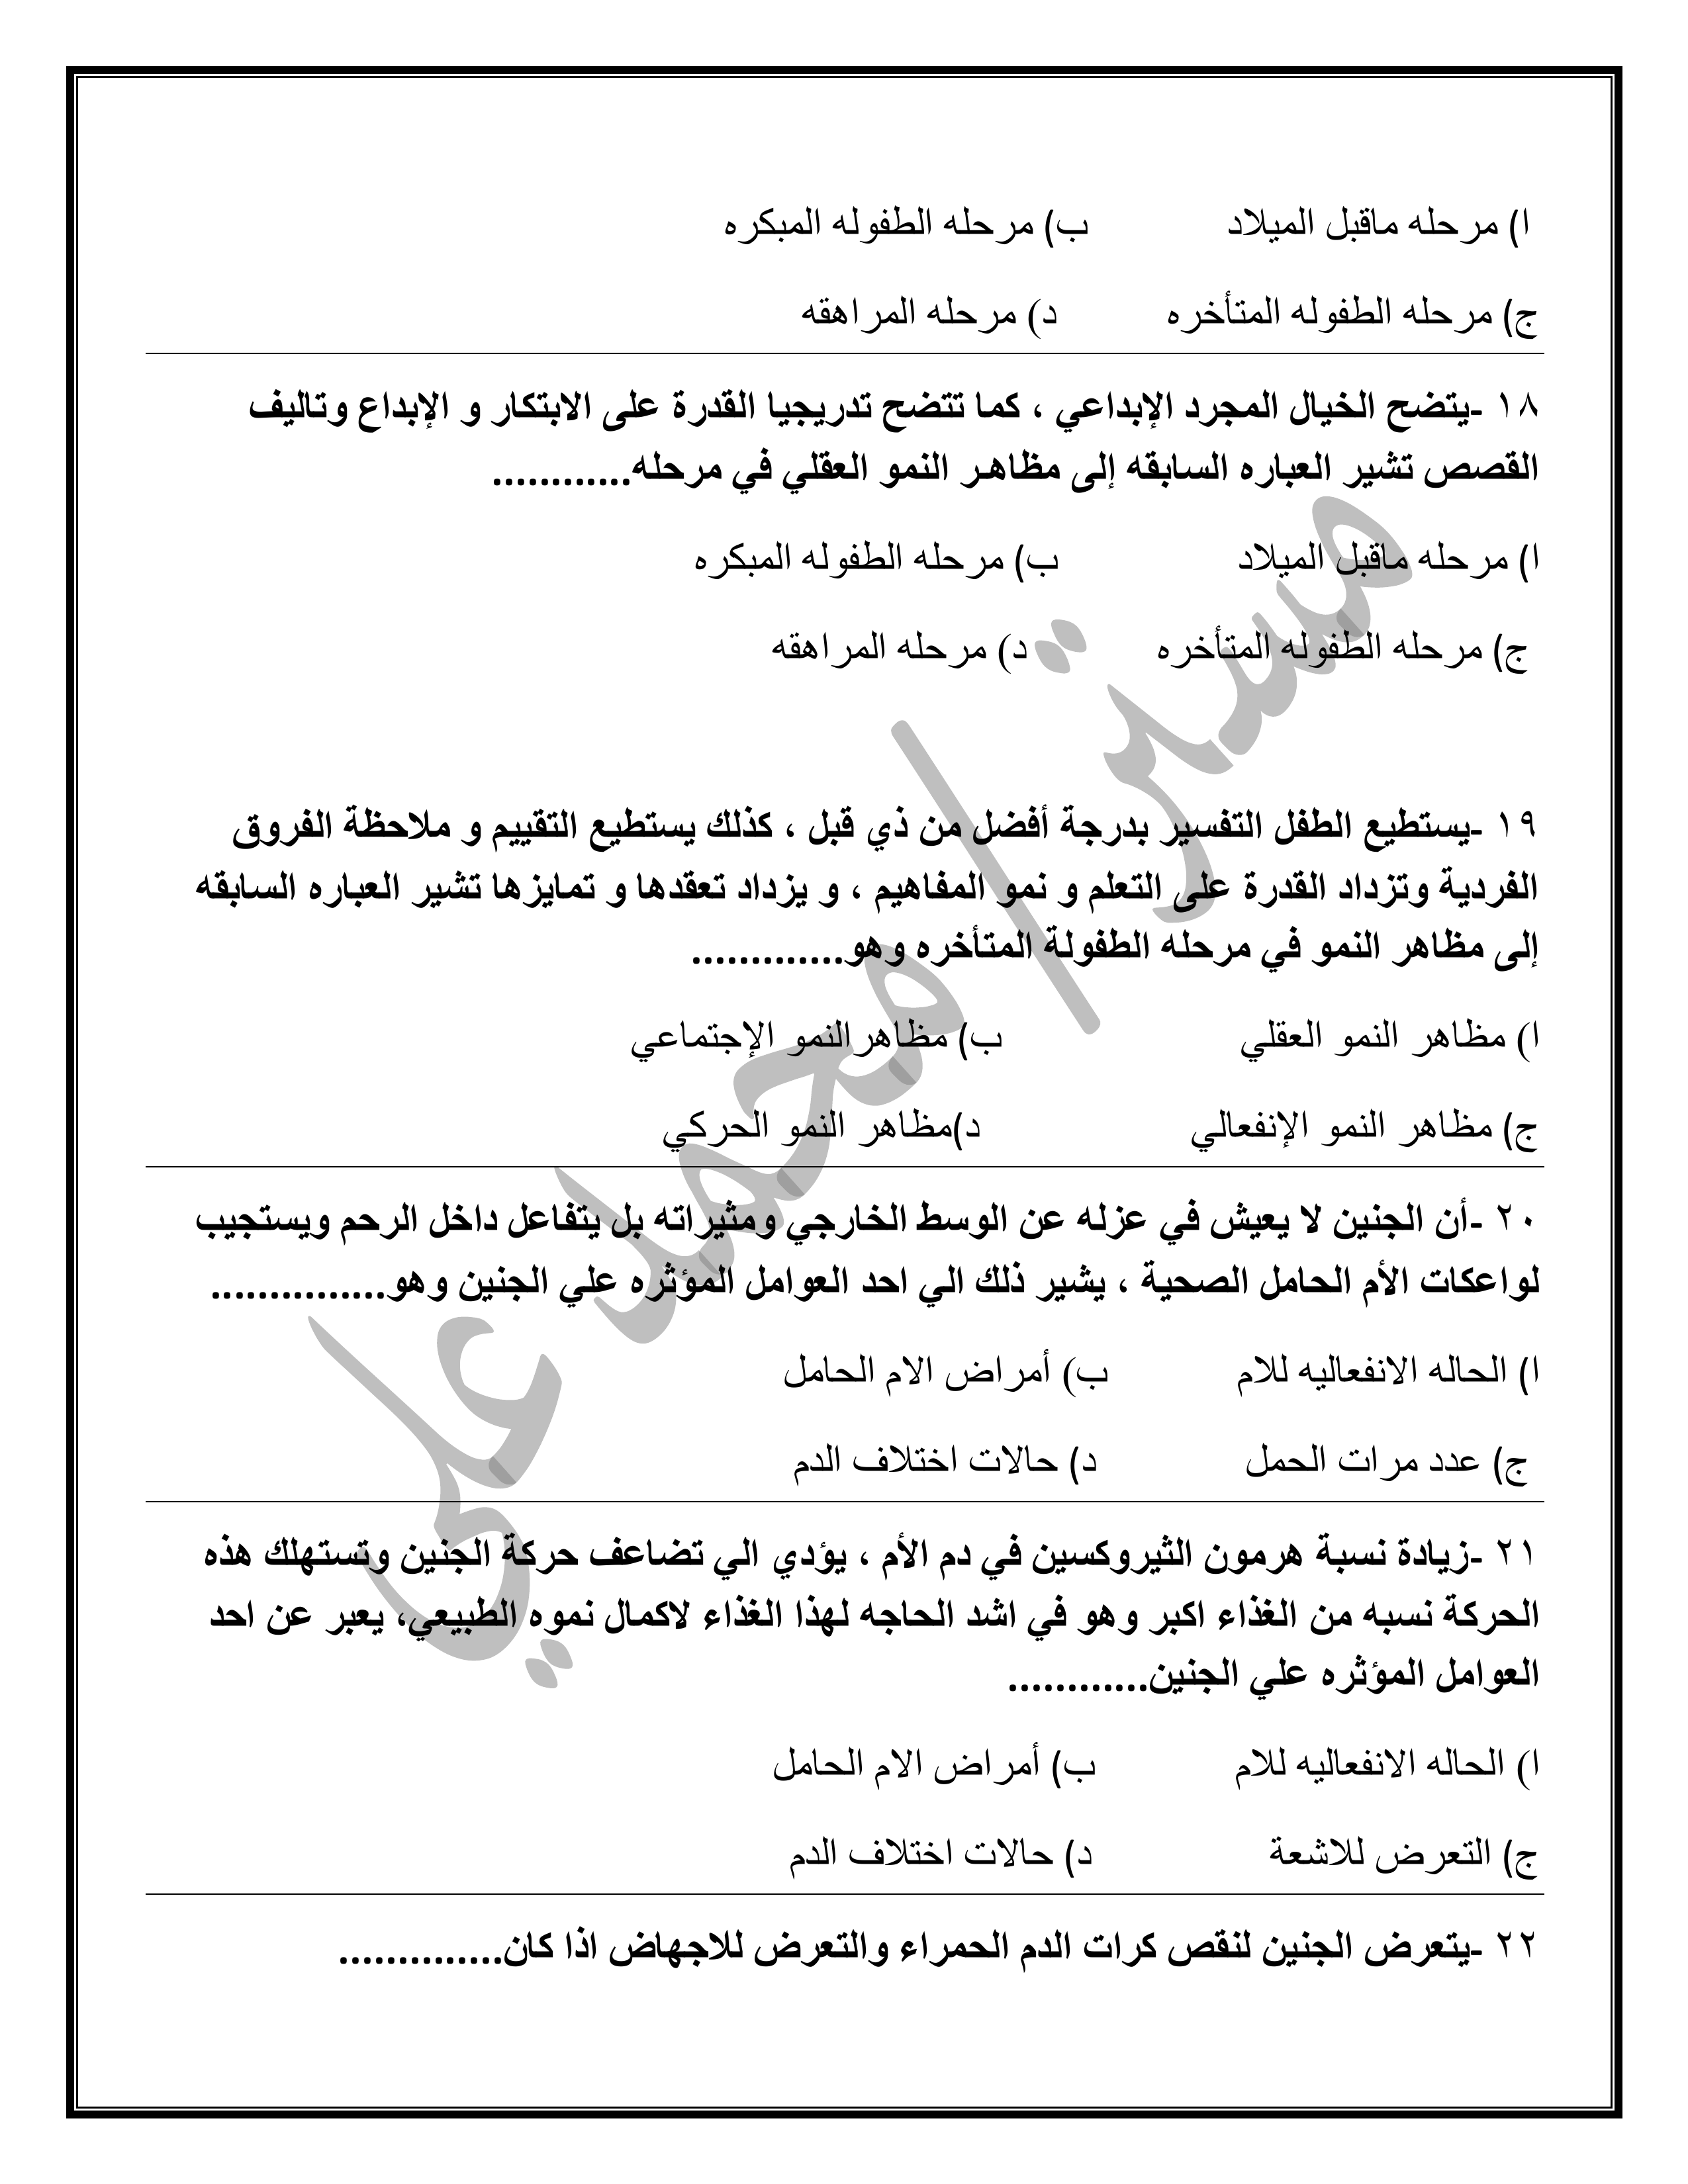 ا) مرحله ماقبل الميلاد ب) مرحله الطفوله المبكره
ج) مرحله الطفوله المتأخره د) مرحله المراهقه
١٨ -يتضح الخيال المجرد الإبداعي ، كما تتضح تدريجيا القدرة على الابتكار و الإبداع وتاليف
القصص تشير العباره السابقه إلى مظاهر النمو العقلي في مرحله............
ا) مرحله ماقبل الميلاد ب) مرحله الطفوله المبكره
ج) مرحله الطفوله المتأخره د) مرحله المراهقه
١٩ -يستطيع الطفل التفسير بدرجة أفضل من ذي قبل ، كذلك يستطيع التقييم و ملاحظة الفروق
الفردية وتزداد القدرة على التعلم و نمو المفاهيم ، و يزداد تعقدها و تمايزها تشير العباره السابقه
إلى مظاهر النمو في مرحله الطفولة المتأخره وهو.............
ا) مظاهر النمو العقلي ب) مظاهرالنمو الإجتماعي
ج) مظاهر النمو الإنفعالي د)مظاهر النمو الحركي
٢٠ -أن الجنين لا يعيش في عزله عن الوسط الخارجي ومثيراته بل يتفاعل داخل الرحم ويستجيب
لواعكات الأم الحامل الصحية ، يشير ذلك الي احد العوامل المؤثره علي الجنين وهو...............
ا) الحاله الانفعاليه للام ب) أمراض الام الحامل
ج) عدد مرات الحمل د) حالات اختلاف الدم
٢١ -زيادة نسبة هرمون الثيروكسين في دم الأم ، يؤدي الي تضاعف حركة الجنين وتستهلك هذه
الحركة نسبه من الغذاء اكبر وهو في اشد الحاجه لهذا الغذاء لاكمال نموه الطبيعي، يعبر عن احد
العوامل المؤثره علي الجنين............
ا) الحاله الانفعاليه للام ب) أمراض الام الحامل
ج) التعرض للاشعة د) حالات اختلاف الدم
٢٢ -يتعرض الجنين لنقص كرات الدم الحمراء والتعرض للاجهاض اذا كان..............
مستر/ محمد علي